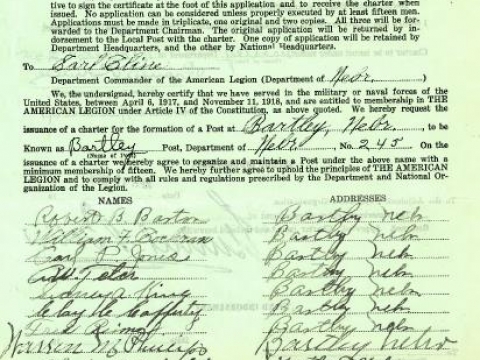 tive to sign the certificate at the foot of this application and to receive the charter when
issued. No application can be considered unless properly executed by at least fifteen men.
Applications must be made in triplicate, original and two copies. All three will be for-
warded to the Department Chairman. The original application will be returned by in-
dorsement to the Local Post with the charter. One copy of application will be retained by
Department Headquarters, and the other by National Headquarters.
To Earl Cline
Department Commander of the American Legion (Department of Nebr. )
We, the undersigned, hereby certify that we have served in the military or naval forces of the
United States, between April 6, 1917, and November 11, 1918, and are entitled to membership in THE
AMERICAN LEGION under Article IV of the Constitution, as above quoted. We hereby request the
issuance of a charter for the formation of a Post at Bartley, Nebr., to be
Known as Bartley Post, Department of Nebr, No. 245 On the
(Name of Post)
issuance of a charter we hereby agree to organize and maintain a Post under the above name with a
minimum membership of fifteen. We hereby further agree to uphold the principles of THE AMERICAN
LEGION and to comply with all rules and regulations prescribed by the Department and National Or-
ganization of the Legion.
NAMES ADDRESSES
Robert B. Barton Bartley Nebr
William F. Bartley Nebr
P. Jones Bartley Nebr
Teter Bartley Nebr
King Bartley Nebr
Clay Mc Bartley Nebr
Fred Bartley Nebr
Warren M Phillips Bartley Nebr